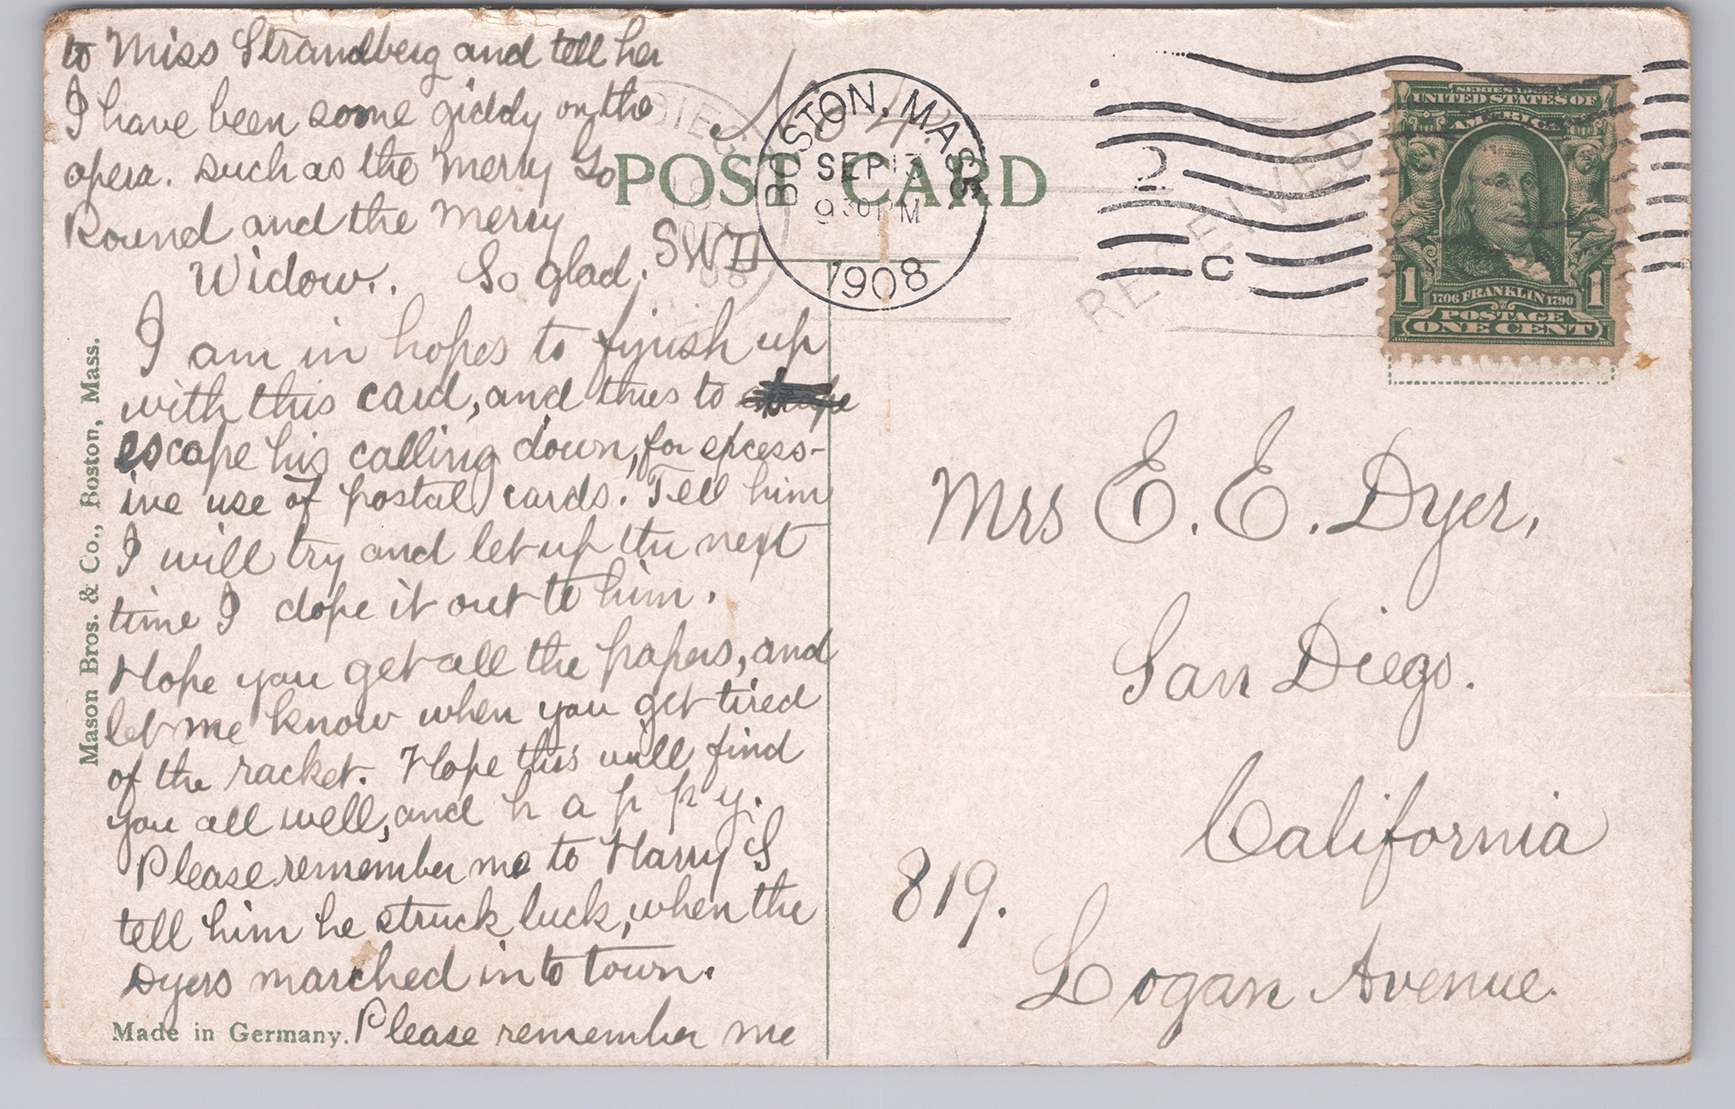 to Miss Strandberg and tell her
I have been some giddy on the
opera. such as the Merry Go
Round and the Merry
Widow. . So glad.
SWD
I am in hopes to finish up
with this card, and thus to
escape his calling down, for excess-
ive use of postal cards. Tell him
I will try and let up the next
time I dope it out to him.
Hope you get all the papers, and
let me know when you get tired
of the racket. Hope this will find
you all well, and h a p p y.
Please remember me to Harry S
tell him he struck luck, when the
Dyers marched into town.
Please remember me
Made in Germany.
Mason Bros. & Co., Boston, Mass.
POST CARD
BOSTON, MASS
SEP 13
9 30 PM
1908
2
C
RECEIVED
SERIES 1902
UNITED STATES OF
AMERICA
1 1706 FRANKLIN 1790 1
POSTAGE
ONE CENT
Mrs E. E. Dyer,
San Diego.
California
819.
Logan Avenue.